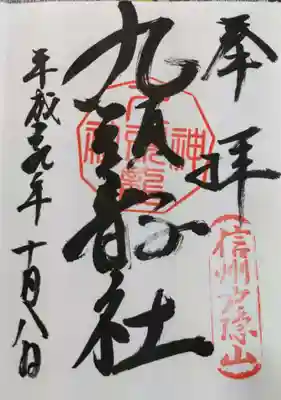 奉拝
信州戸隠山
九頭龍社
平成廿九年十月八日